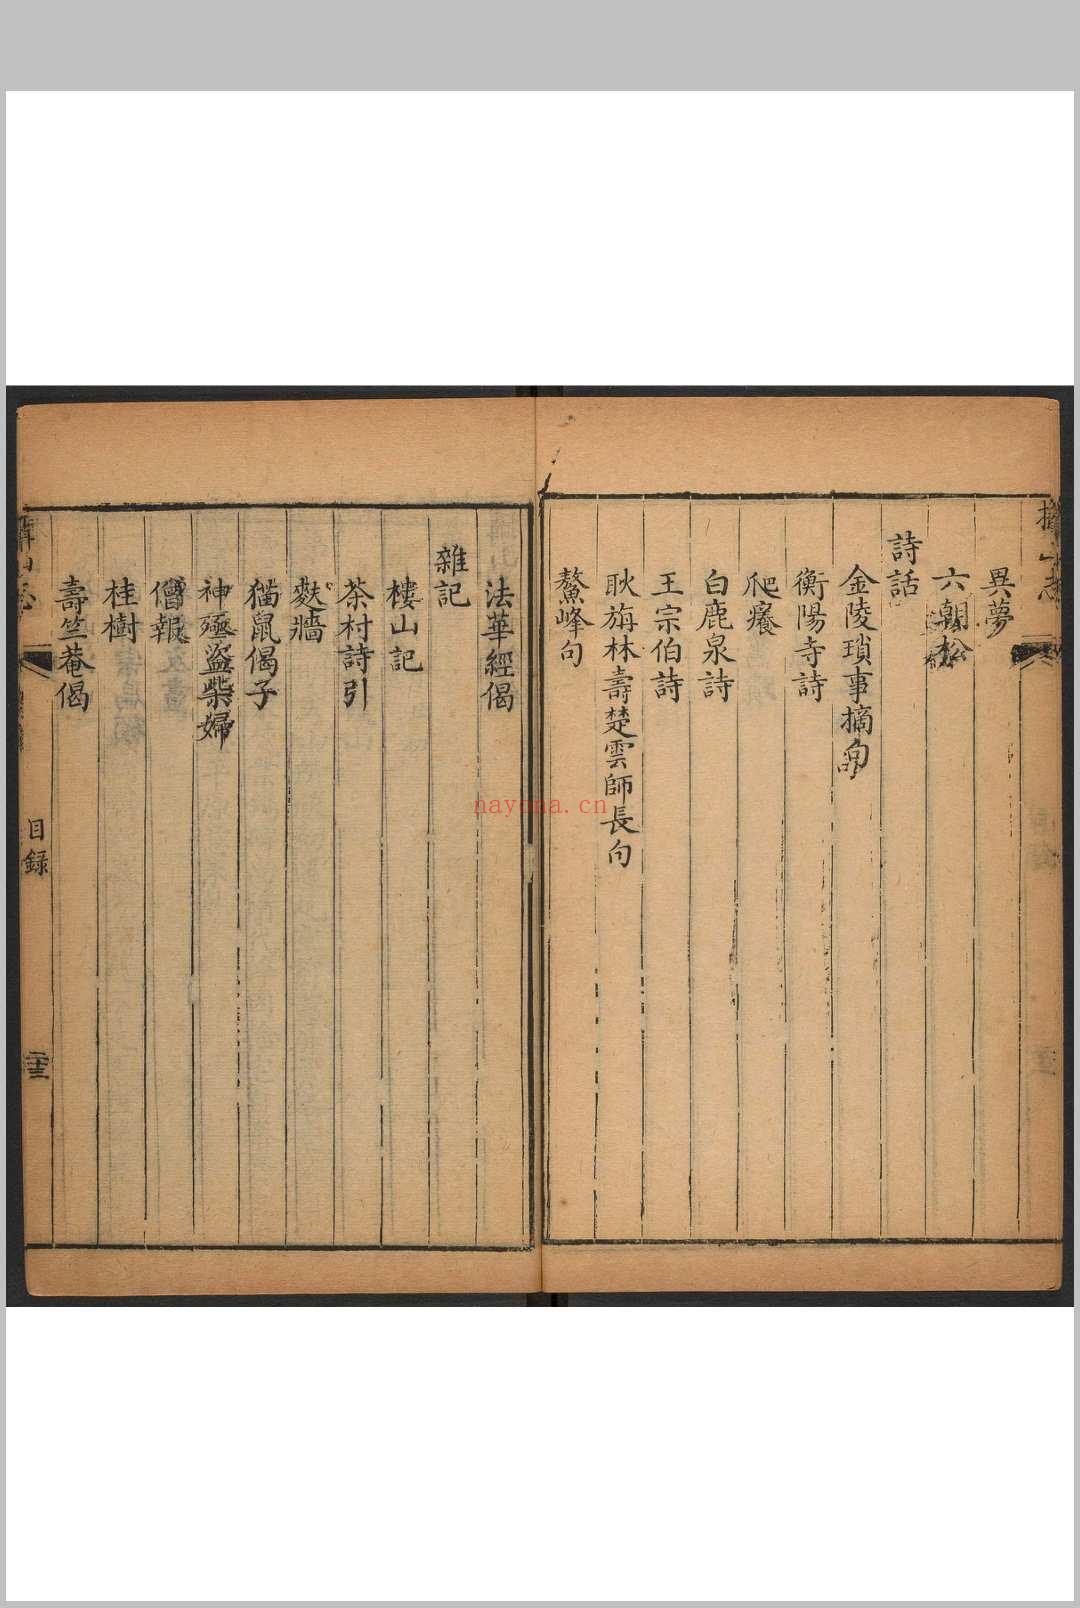 異夢
六朝松
詩話
金陵瑣事摘句
衡陽寺詩
爬癢
白鹿泉詩
王宗伯詩
耿旃林壽楚雲師長句
鰲峰句
法華經偈
雜記
樓山記
茶村詩引
麩牆
猫鼠偈子
神殛盜柴婦
僧報
桂樹
壽竺菴偈
目録
二十三
nayona.cn